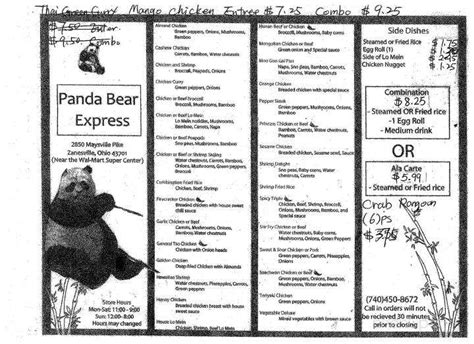 Thai Green Curry Mango chicken Entree $7.25 Combo $9.25
$7.50 Enter
$9.50 Combo
Panda Bear
Express
2850 Maysville Pike
Zanesville, Ohio 43701
(Near the Wal-Mart Super Center)
Store Hours
Mon-Sat: 11:00 - 9:00
Sun: 12:00 - 8:00
Hours may changed
Almond Chicken
Green peppers, Onions, Mushrooms,
Bamboo
Cashew Chicken
Carrots, Bamboo, Water chestnuts
Chicken and Shrimp
Broccoli, Onions
Chicken Curry
Green peppers, Onions
Chicken or Beef Broccoli
Broccoli, Mushrooms, Bamboo
Chicken or Beef Lo Mein
Lo Mein noodles, Mushrooms,
Bamboo, Carrots, Napa
Chicken or Beef Peapods
Snow peas, Mushrooms, Bamboo
Chicken or Beef or Shrimp
Water chestnuts, Carrots, Bamboo,
Onions, Mushrooms, Green peppers,
Broccoli
Combination Fried Rice
Chicken, Beef, Shrimp
Firecracker Chicken
Breaded chicken with house sweet
chili sauce
Garlic Chicken or Beef
Carrots, Mushrooms, Onions,
Bamboo, Water chestnuts
General Tso Chicken
Chicken with Onion
Golden Chicken
Deep fried Chicken with Almonds
Hawaiian Shrimp
Water chestnuts, Pineapples, Carrots,
Green peppers
Honey Chicken
Breaded chicken breast with house
sweet sauce
House Lo Mein
Chicken, Shrimp, Beef Lo Mein
Hunan Beef or Chicken
Broccoli, Mushrooms, Baby corns
Mongolian Chicken or Beef
Green onion and Special sauce
Moo Goo Gai Pan
Napa, Snow peas, Bamboo, Carrots,
Mushrooms, Water chestnuts
Orange Chicken
Breaded chicken with special sauce
Pepper Steak
Green peppers, Mushrooms, Onions,
Bamboo
Princess Chicken or Beef
Bamboo, Carrots, Mushrooms,
Water chestnuts
Sesame Chicken
Breaded chicken, Sesame seed, Sauce
Shrimp Delight
Snow peas, Baby corns, Water
chestnuts, Carrots
Shrimp Fried Rice
Spicy Triple
Chicken, Beef, Shrimp, Broccoli,
Onions, Mushrooms, Bamboo, and
Special sauce
Stir Fry Chicken or Beef
Water chestnuts, Baby corns,
Mushrooms, Onions, Green Peppers
Sweet & Sour Chicken or Pork
Green peppers, Carrots, Pineapples,
Onions
Szechwan Chicken or Beef
Green peppers, Onions, Bamboo,
Mushrooms, Water chestnuts
Teriyaki Chicken
Green peppers, Onions
Vegetable Deluxe
Mixed vegetables with brown sauce
Side Dishes
Steamed or Fried Rice $1.75
Egg Roll (1)
Side of Lo Mein $2.95
Chicken Nugget $1.25
Combination
$8.25
- Steamed OR Fried rice
- 1 Egg Roll
- Medium drink
OR
Ala Carte
$5.99
- Steamed or Fried rice
Crab Rangoon
(6)PS
(740)450-8672
Call in orders will not
be recieved 30 minutes
prior to closing